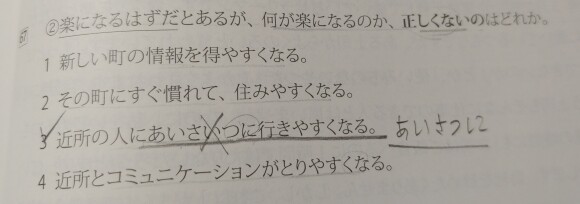 ②楽になるはずだとあるが、何が楽になるのか、正しくないのはどれか。
1 新しい町の情報を得やすくなる。
2 その町にすぐ慣れて、住みやすくなる。
3 近所の人にあいさいつに行きやすくなる。 あいさつに
4 近所とコミュニケーションがとりやすくなる。